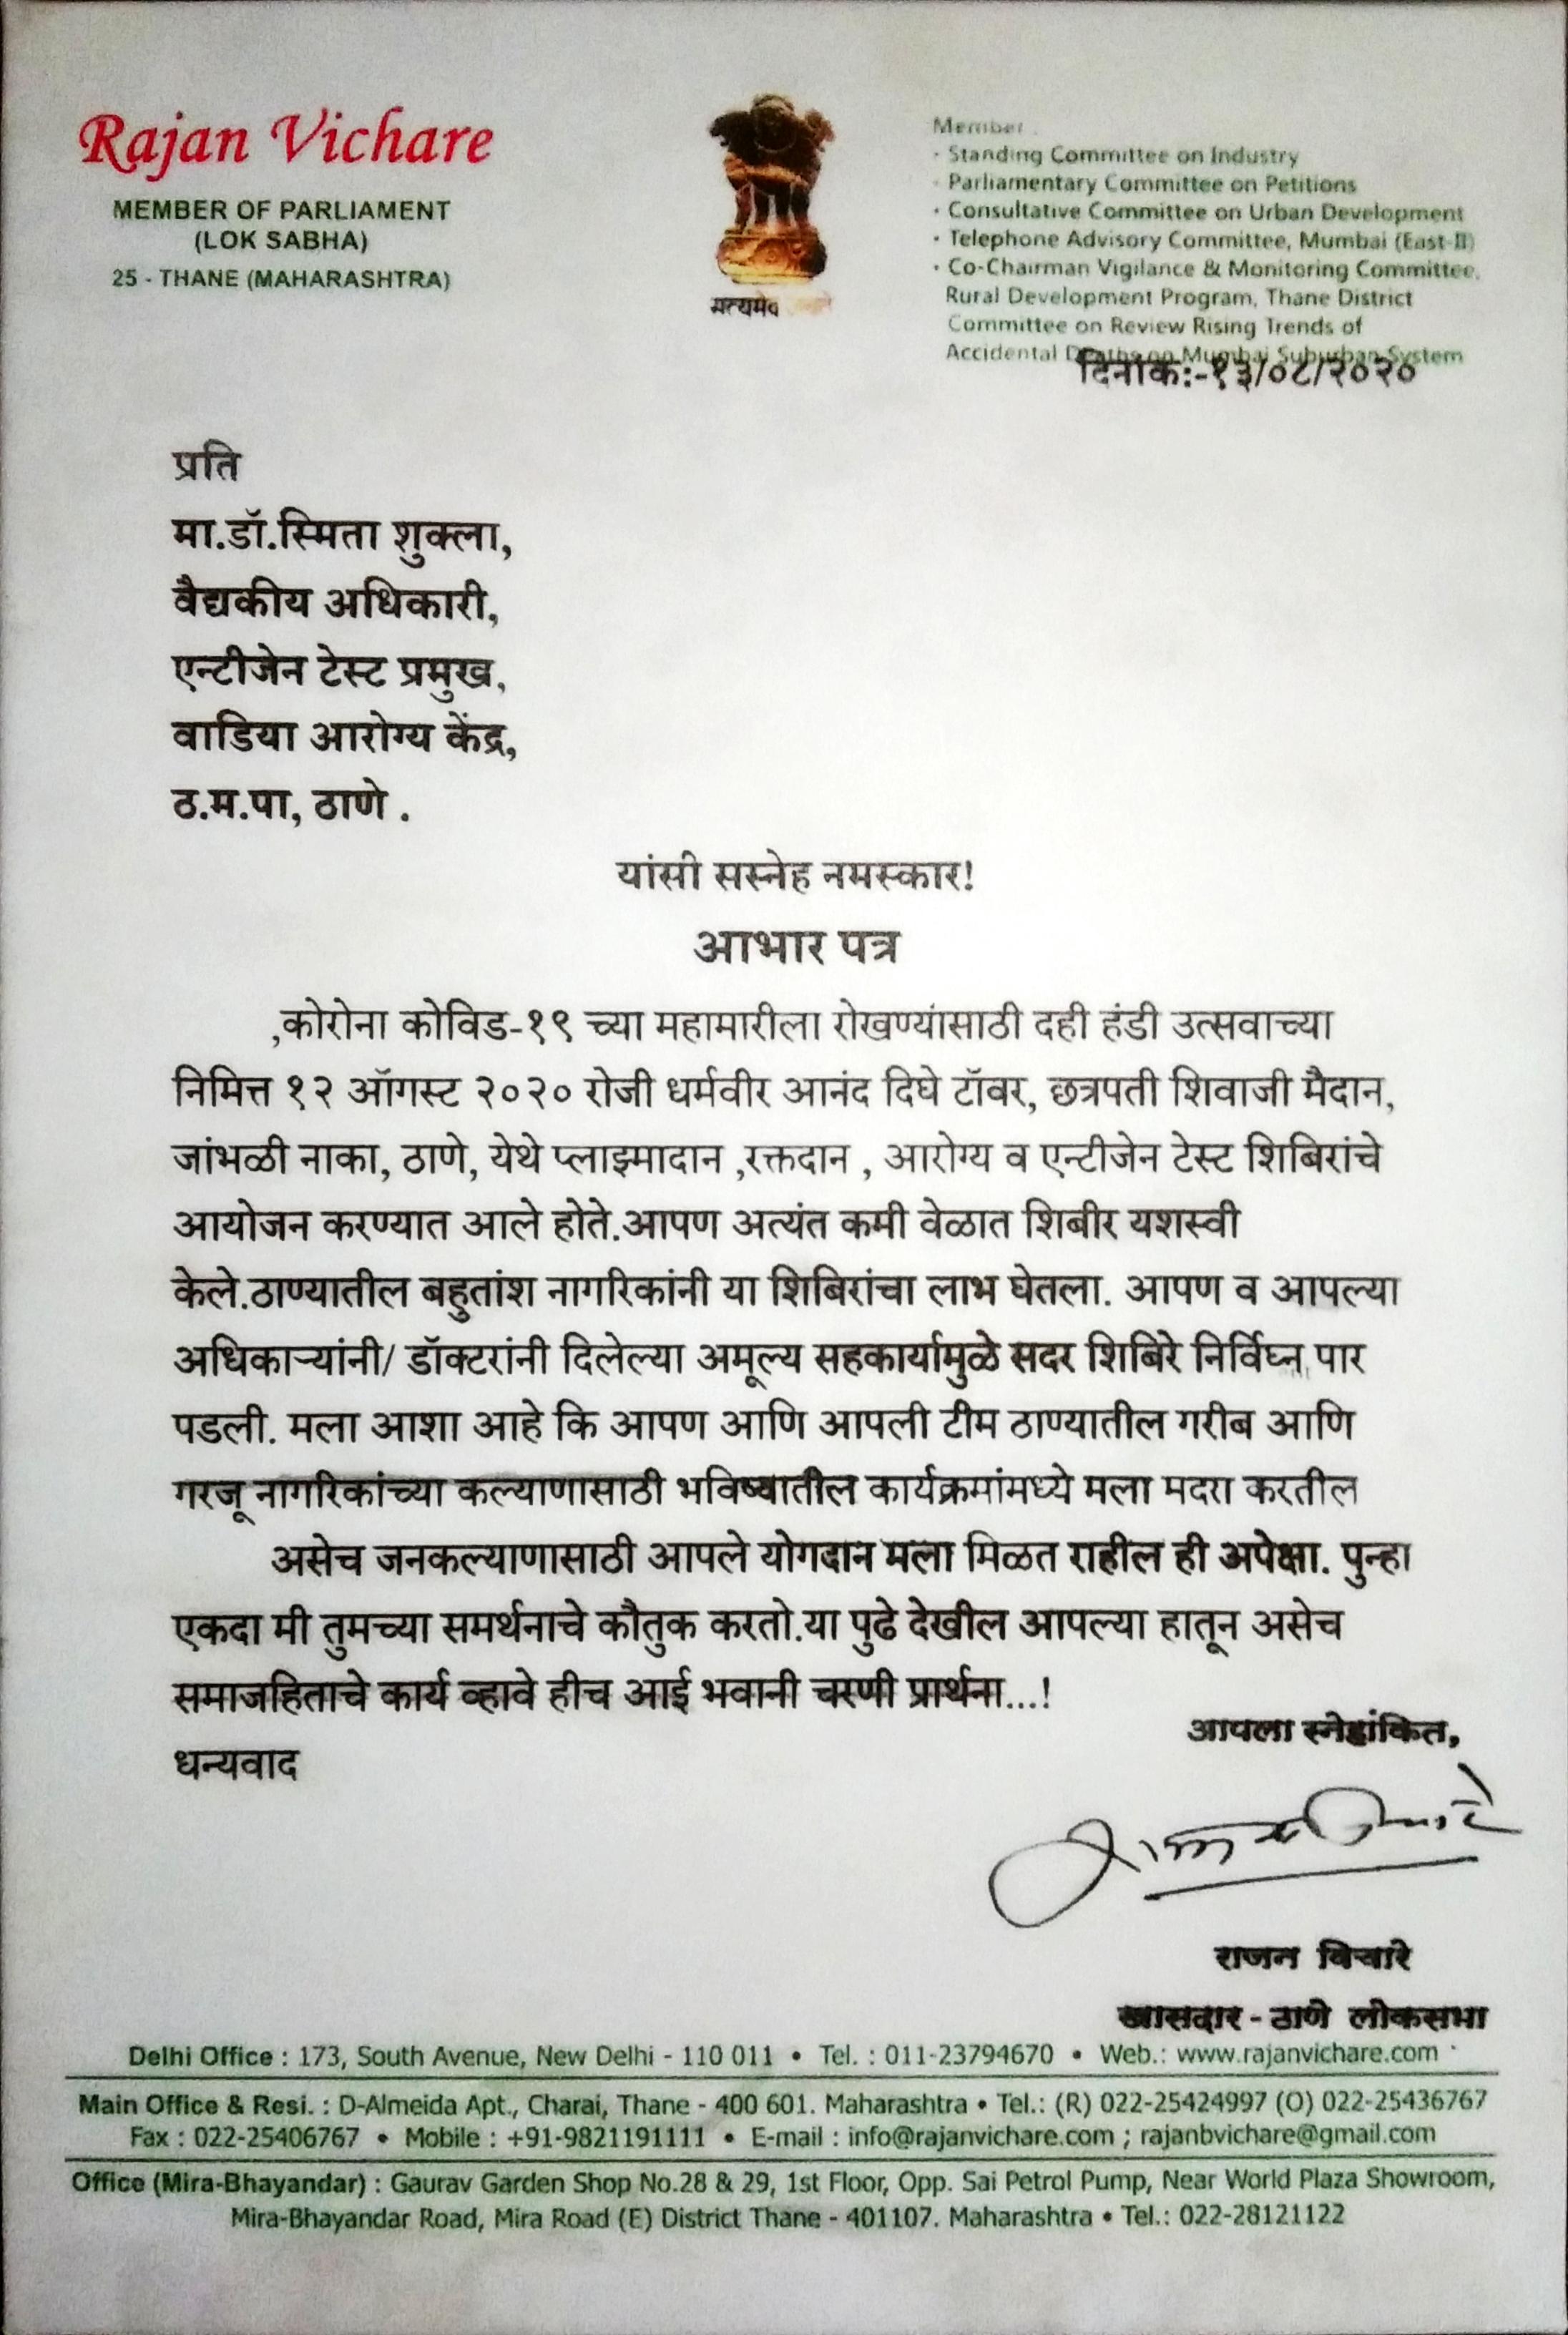 Rajan Vichare
MEMBER OF PARLIAMENT
(LOK SABHA)
25 - THANE (MAHARASHTRA)
सत्यमेव
Member
· Standing Committee on Industry
· Parliamentary Committee on Petitions
· Consultative Committee on Urban Development
· Telephone Advisory Committee, Mumbai (East-II)
· Co-Chairman Vigilance & Monitoring Committee,
Rural Development Program, Thane District
Committee on Review Rising Trends of
Accidental Deaths on Mumbai Suburban System
दिनांक:-१३/०८/२०२०
प्रति
मा.डॉ.स्मिता शुक्ला,
वैद्यकीय अधिकारी,
एन्टीजेन टेस्ट प्रमुख,
वाडिया आरोग्य केंद्र,
ठ.म.पा, ठाणे .
यांसी सस्नेह नमस्कार!
आभार पत्र
,कोरोना कोविड-१९ च्या महामारीला रोखण्यांसाठी दही हंडी उत्सवाच्या
निमित्त १२ ऑगस्ट २०२० रोजी धर्मवीर आनंद दिघे टॉवर, छत्रपती शिवाजी मैदान,
जांभळी नाका, ठाणे, येथे प्लाझ्मादान ,रक्तदान , आरोग्य व एन्टीजेन टेस्ट शिबिरांचे
आयोजन करण्यात आले होते.आपण अत्यंत कमी वेळात शिबीर यशस्वी
केले.ठाण्यातील बहुतांश नागरिकांनी या शिबिरांचा लाभ घेतला. आपण व आपल्या
अधिकाऱ्यांनी/ डॉक्टरांनी दिलेल्या अमूल्य सहकार्यामुळे सदर शिबिरे निर्विघ्न पार
पडली. मला आशा आहे कि आपण आणि आपली टीम ठाण्यातील गरीब आणि
गरजू नागरिकांच्या कल्याणासाठी भविष्यातील कार्यक्रमांमध्ये मला मदरा करतील
असेच जनकल्याणासाठी आपले योगदान मला मिळत राहील ही अपेक्षा. पुन्हा
एकदा मी तुमच्या समर्थनाचे कौतुक करतो.या पुढे देखील आपल्या हातून असेच
समाजहिताचे कार्य व्हावे हीच आई भवानी चरणी प्रार्थना...!
आपला स्नेहांकित,
धन्यवाद
राजन विचारे
खासदार - ठाणे लोकसभा
Delhi Office : 173, South Avenue, New Delhi - 110 011 • Tel. : 011-23794670 • Web.: www.rajanvichare.com
Main Office & Resi. : D-Almeida Apt., Charai, Thane - 400 601. Maharashtra • Tel.: (R) 022-25424997 (O) 022-25436767
Fax : 022-25406767 • Mobile : +91-9821191111 • E-mail : info@rajanvichare.com ; rajanbvichare@gmail.com
Office (Mira-Bhayandar) : Gaurav Garden Shop No.28 & 29, 1st Floor, Opp. Sai Petrol Pump, Near World Plaza Showroom,
Mira-Bhayandar Road, Mira Road (E) District Thane - 401107. Maharashtra • Tel.: 022-28121122